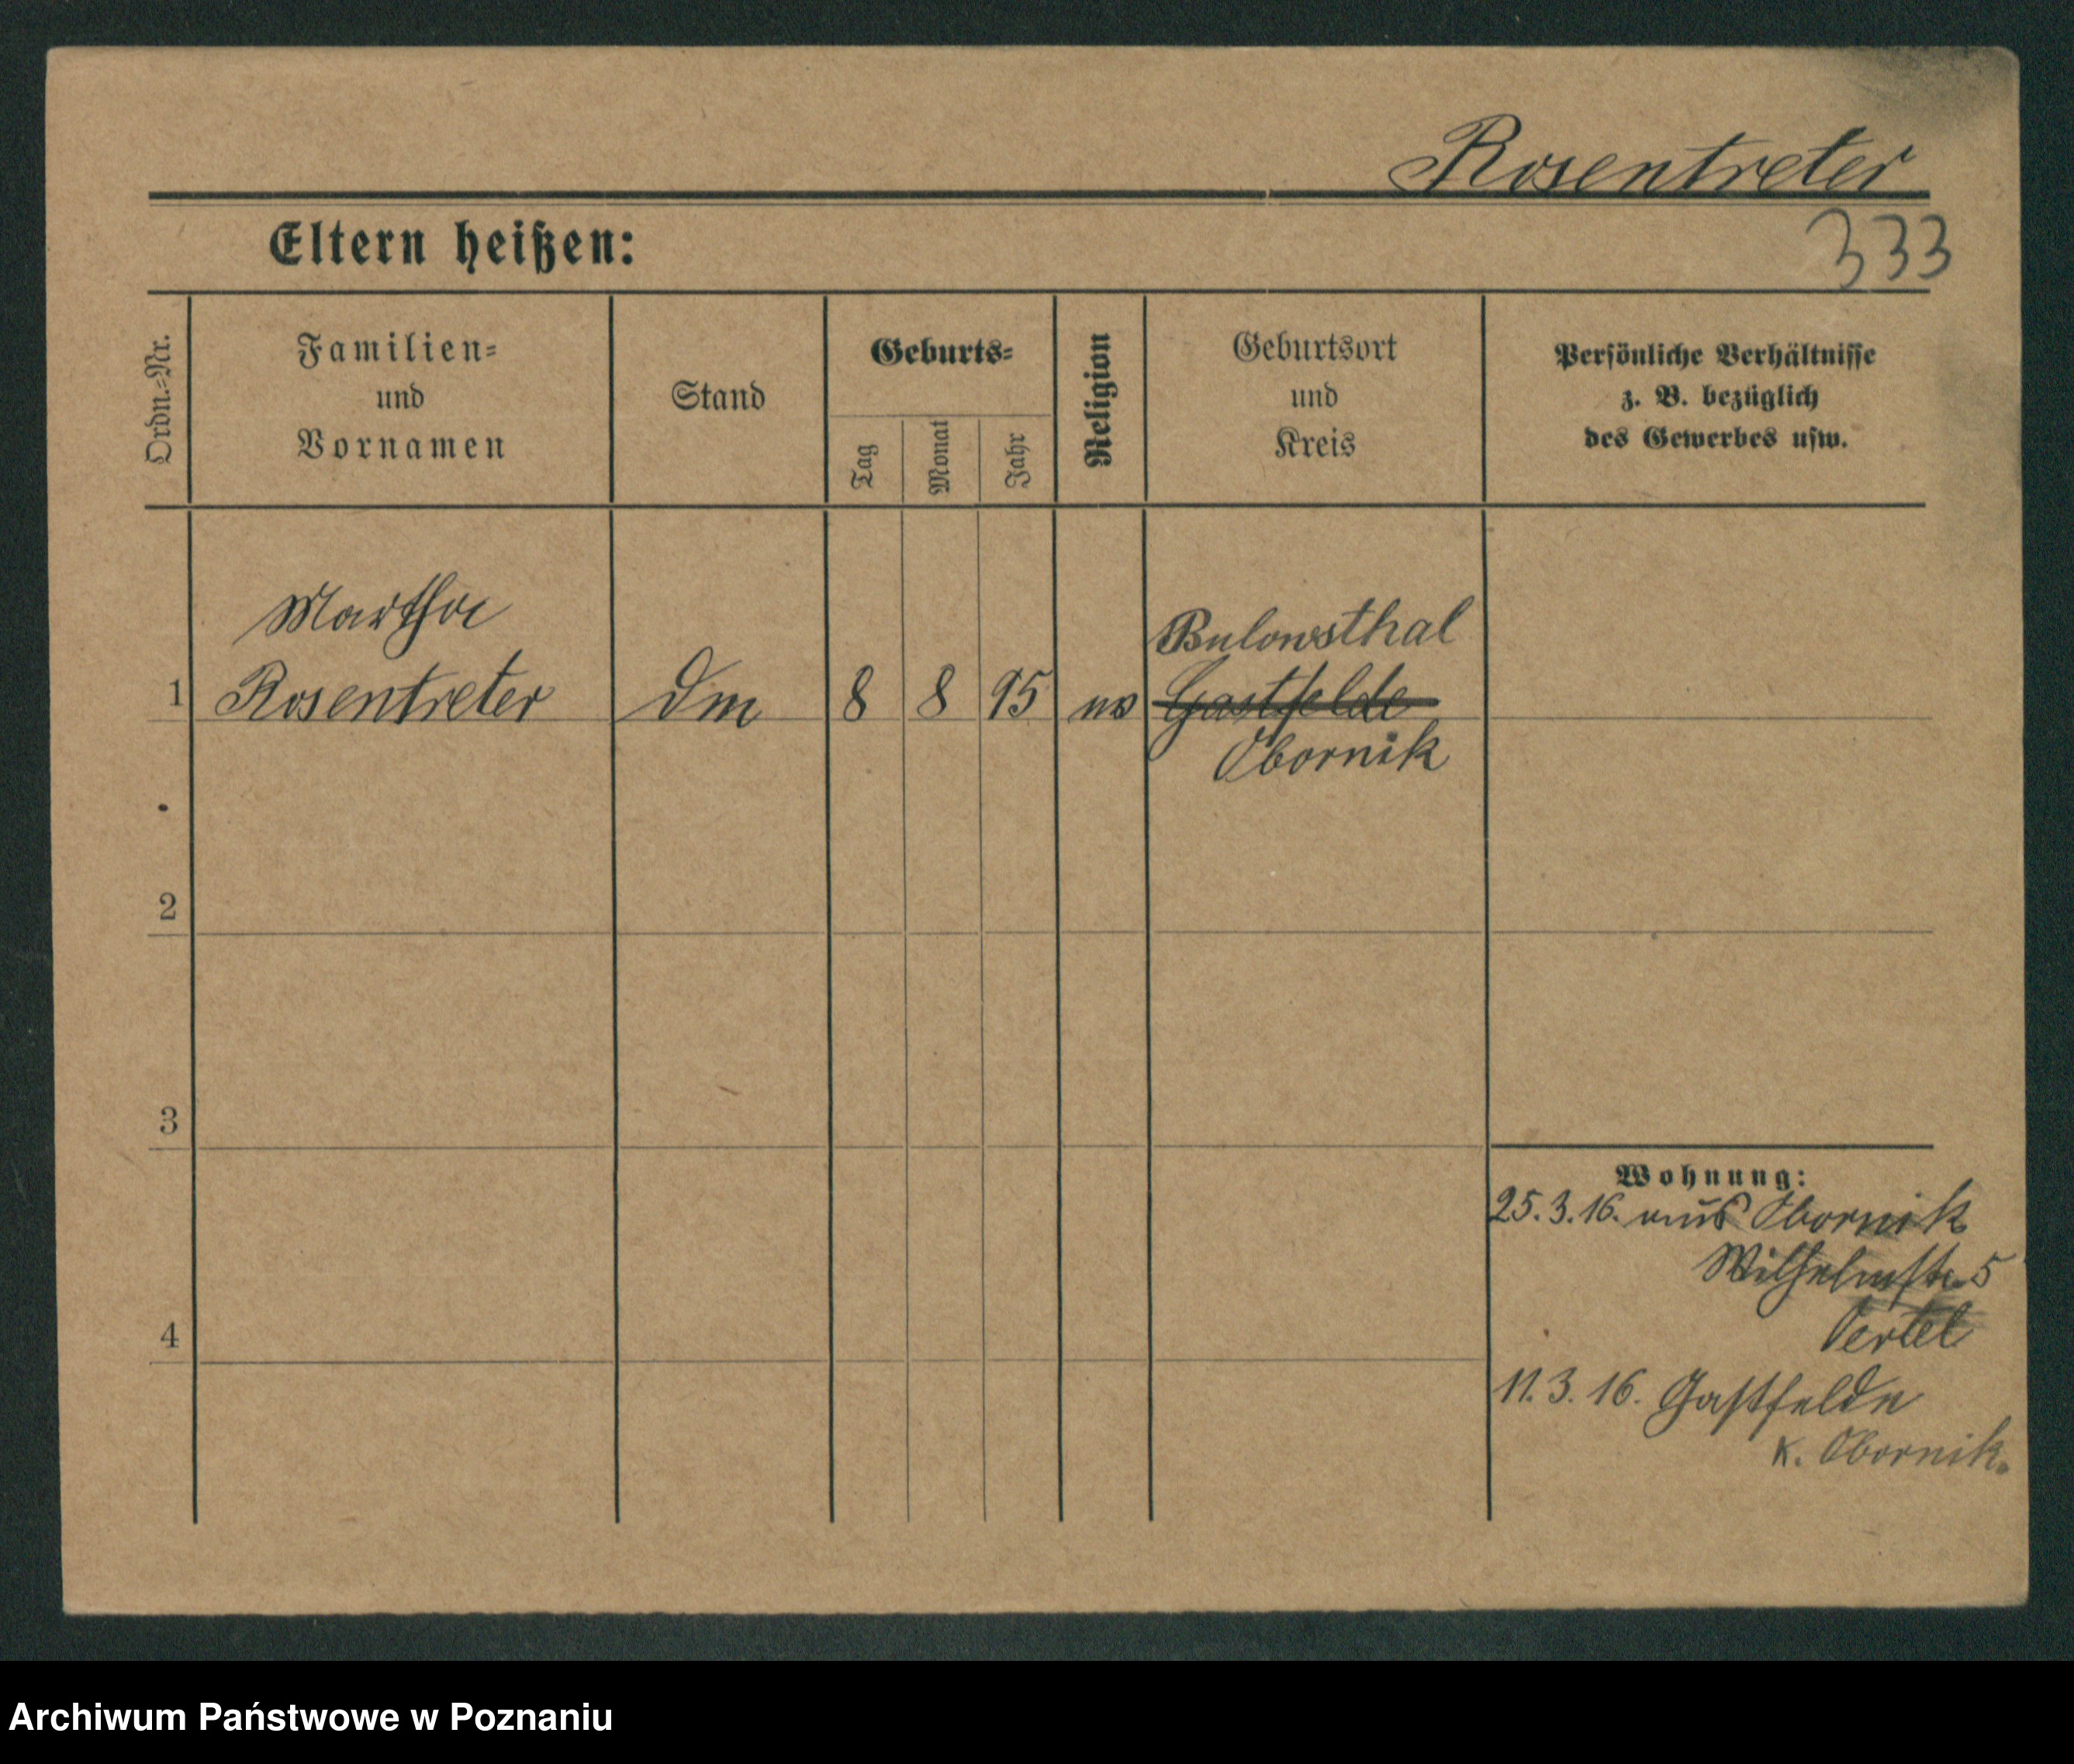 Rosentreter
333
Eltern heißen:
Ordn.-Nr.
Familien-
und
Vornamen
Stand
Geburts-
Tag
Monat
Jahr
Religion
Geburtsort
und
Kreis
Persönliche Verhältnisse
z. B. bezüglich
des Gewerbes usw.
Martha
Bulowsthal
1 Rosentreter Dm 8 8 95 Gastfelde
Obornik
2
3
Wohnung:
25.3.16. aus Obornik
Wilhelmstr. 5
Oertel
4
11.3.16. Gastfelde
K. Obornik.
Archiwum Państwowe w Poznaniu